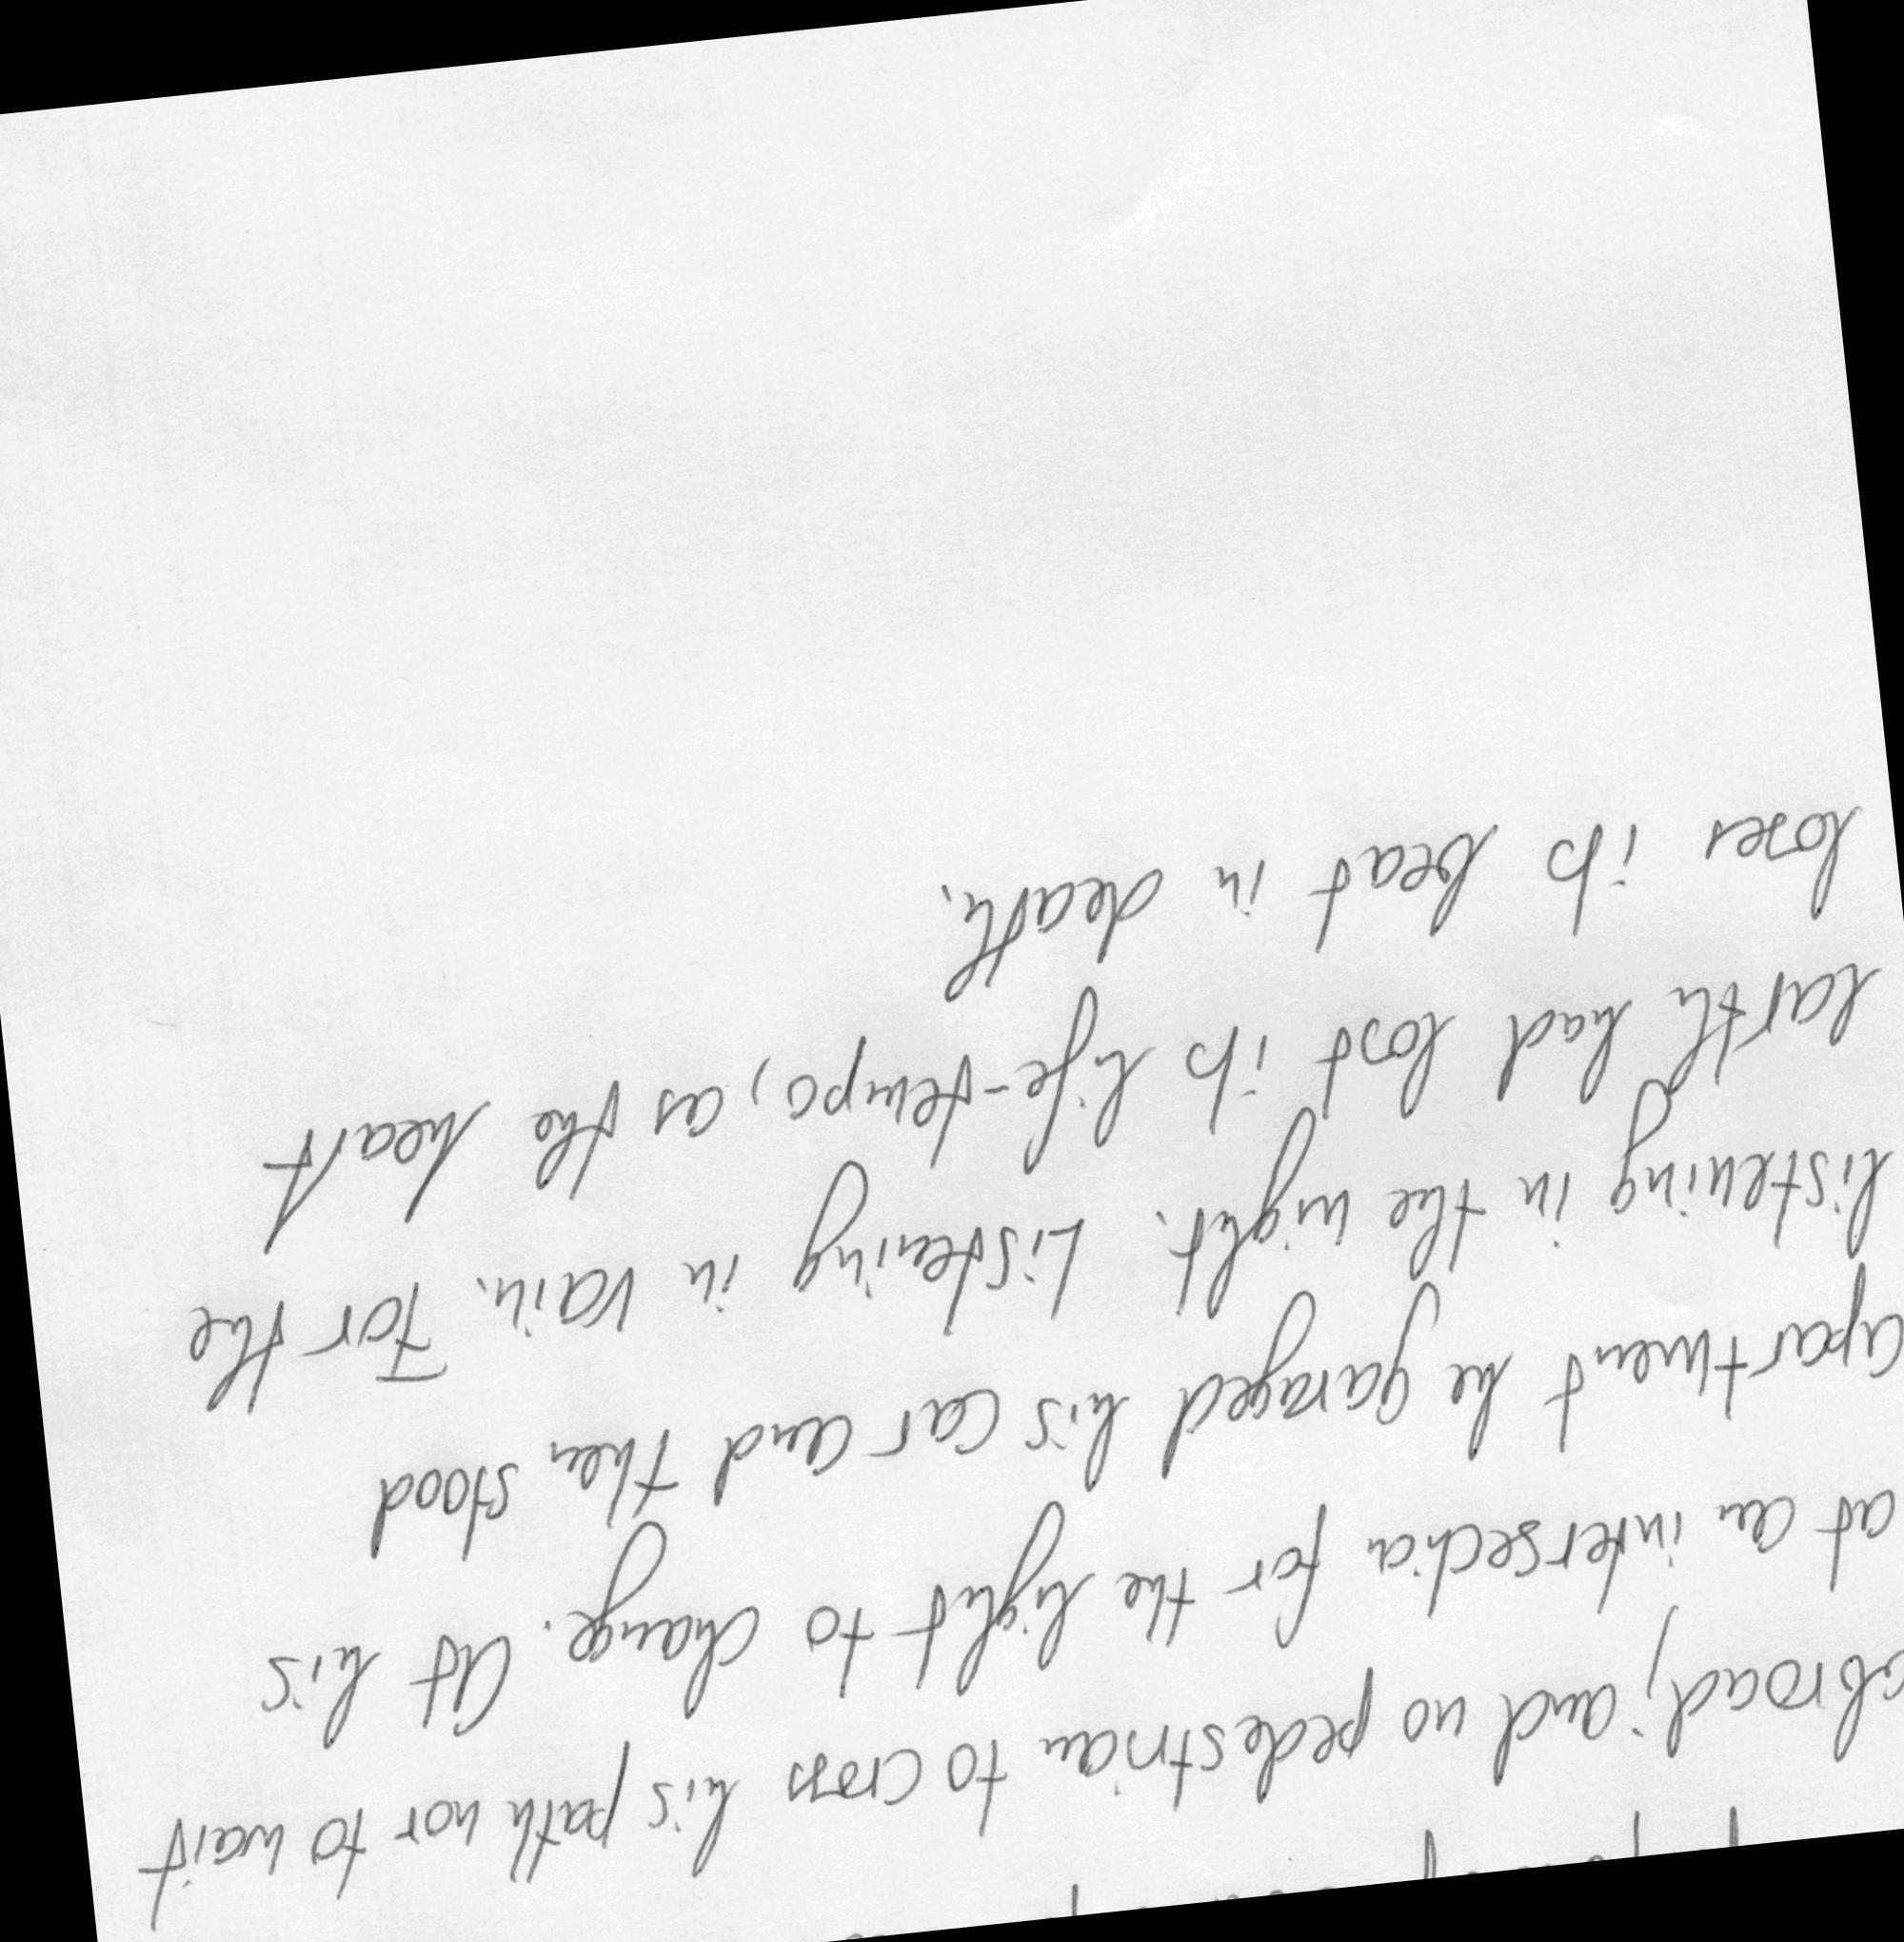 abroad, and no pedestrian to cross his path nor to wait
at an intersection for the light to change. At his
apartment he garaged his car and then stood
listening in the night. Listening in vain. For the
earth had lost its life-tempo, as the heart
loses its beat in death.